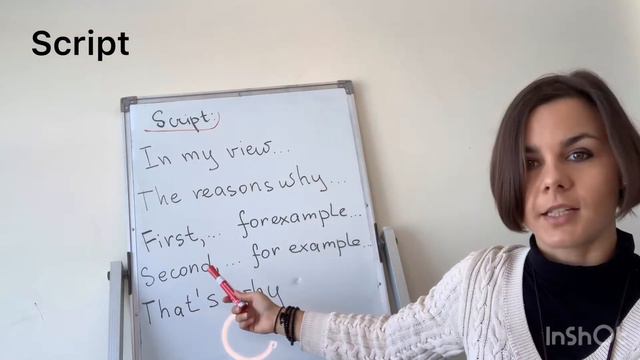 Script
Script:
In my view...
The reasons why...
First,... for example...
Second.... for example...
That's why
InShO